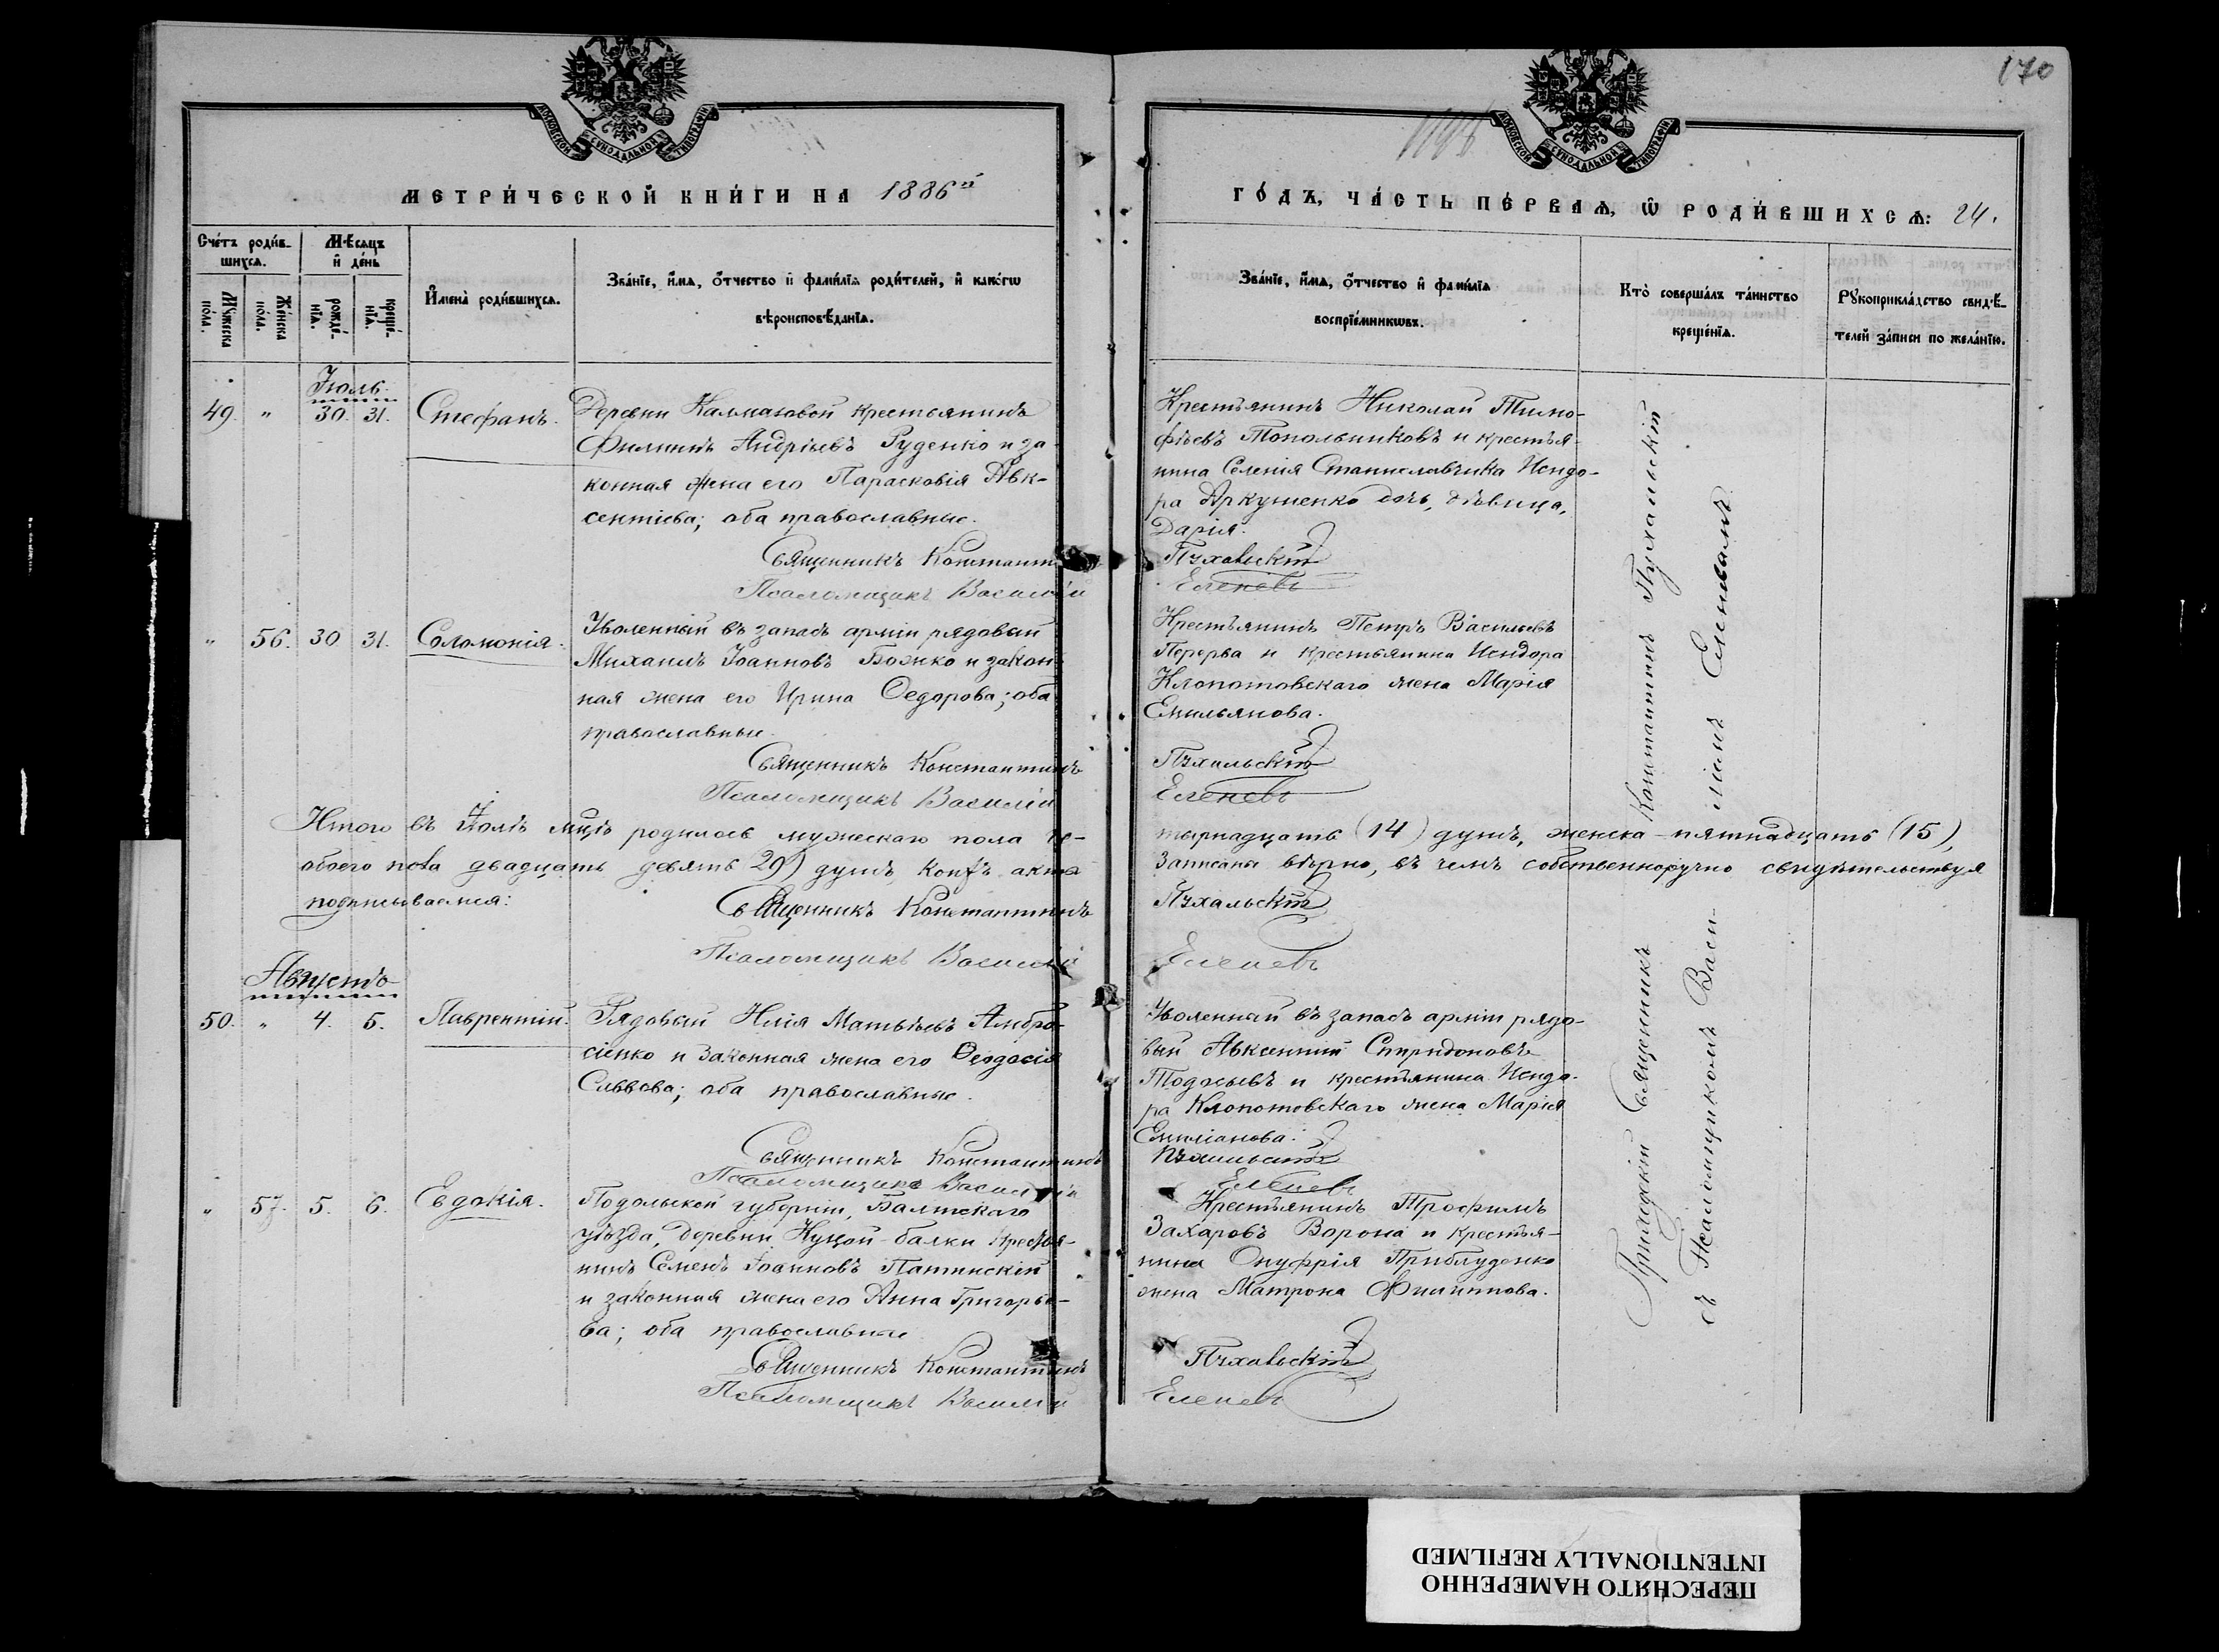 170
МОСКОВСКОЙ СѴНОДАЛЬНОЙ ТИПОГРАФІИ
МОСКОВСКОЙ СѴНОДАЛЬНОЙ ТИПОГРАФІИ
МЕТРИ́ЧЕСКОЙ КНИ́ГИ НА 1886й
ГО́ДЪ, ЧА́СТЬ ПЕ́РВАѦ, Ѡ РОДИ́ВШИХСѦ: 24.
Сче́тъ роди́в-
шихсѧ.
Мꙋ́жеска по́ла.
Же́нска по́ла.
Мѣ́сѧцъ
и҆ де́нь
рожде́-
нїѧ.
креще́-
нїѧ.
И҆мена̀ роди́вшихсѧ.
Зва́нїе, и҆́мѧ, ѻ҆́тчество и҆ фами́лїѧ роди́телей, и҆ како́гѡ
вѣроисповѣ́данїѧ.
Зва́нїе, и҆́мѧ, ѻ҆́тчество и҆ фами́лїѧ
воспрїе́мникѡвъ.
Кто̀ соверша́лъ та́инство
креще́нїѧ.
Рꙋкоприкла́дство свидѣ́-
телей за́писи по жела́нїю.
Іюль.
49. " 30. 31. Стефанъ.
Деревни Калмазовой крестьянинъ
Филиппъ Андріевъ Руденко и за-
конная жена его Парасковія Авк-
сентіева; оба православные.
Священникъ Константи
Псаломщикъ Василій
Крестьянинъ Николай Тимо-
фѣевъ Топольниковъ и крестья-
нина Селенія Станиславчика Исидо-
ра Аркушенко дочь, дѣвица,
Дарія.
Пухальскій
Еленевъ
" 56. 30 31. Соломонія.
Уволенный въ запасъ арміи рядовый
Михаилъ Іоанновъ Божко и закон-
ная жена его Ирина Ѳедорова; оба
православные.
Священникъ Константинъ
Псаломщикъ Василій
Крестьянинъ Петръ Васильевъ
Перерва и крестьянина Исидора
Клопотовскаго жена Марія
Емильянова.
Пухальскій
Еленевъ
Итого въ Іюлѣ мцѣ родилось мужескаго пола че-
тырнадцать (14) душъ, женска - пятнадцать (15),
обоего пола двадцать девять 29) душъ, акты
Записаны вѣрно, въ чемъ собственноручно свидѣтельствуя
подписываемся:
Священникъ Константинъ
Пухальскій
Псаломщикъ Василій
Еленевъ
Августъ
50. " 4. 5. Лаврентій.
Рядовый Илія Матвѣевъ Амбро-
сіенко и законная жена его Ѳеодосія
Саввова; оба православные.
Священникъ Константинъ
Псаломщикъ Василій
Уволенный въ запасъ арміи рядо-
вый Авксентій Спиридоновъ
Тодосьевъ и крестьянина Исидо-
ра Клопотовскаго жена Марія
Емиліанова.
Пухальскій
Еленевъ
" 57. 5. 6. Евдокія.
Подольской губерніи, Балтскаго
уѣзда, деревни Куцой-балки крестья-
нинъ Семенъ Іоанновъ Патинскій
и законная жена его Анна Григорье-
ва; оба православные
Священникъ Константинъ
Псаломщикъ Василій
Крестьянинъ Трофимъ
Захаровъ Ворона и крестья-
нина Онуфрія Приблуденко
жена Матрона Филиппова.
Пухальскій
Еленевъ
Приходскій Священникъ Константинъ Пухальскій
съ Псаломщикомъ Васи- ліемъ Еленевымъ.
ПЕРЕСНЯТО НАМЕРЕННО
INTENTIONALLY REFILMED